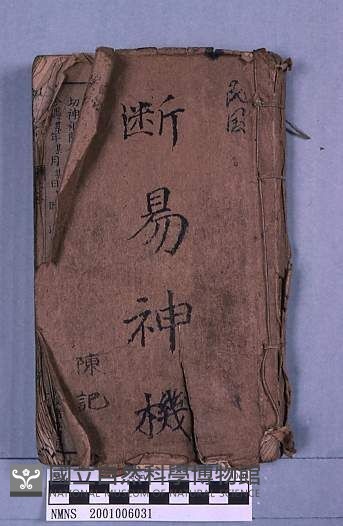 民国
断易神機
陳記
國立自然科學博物館
NATIONAL MUSEUM OF NATURAL SCIENCE
NMNS 2001006031